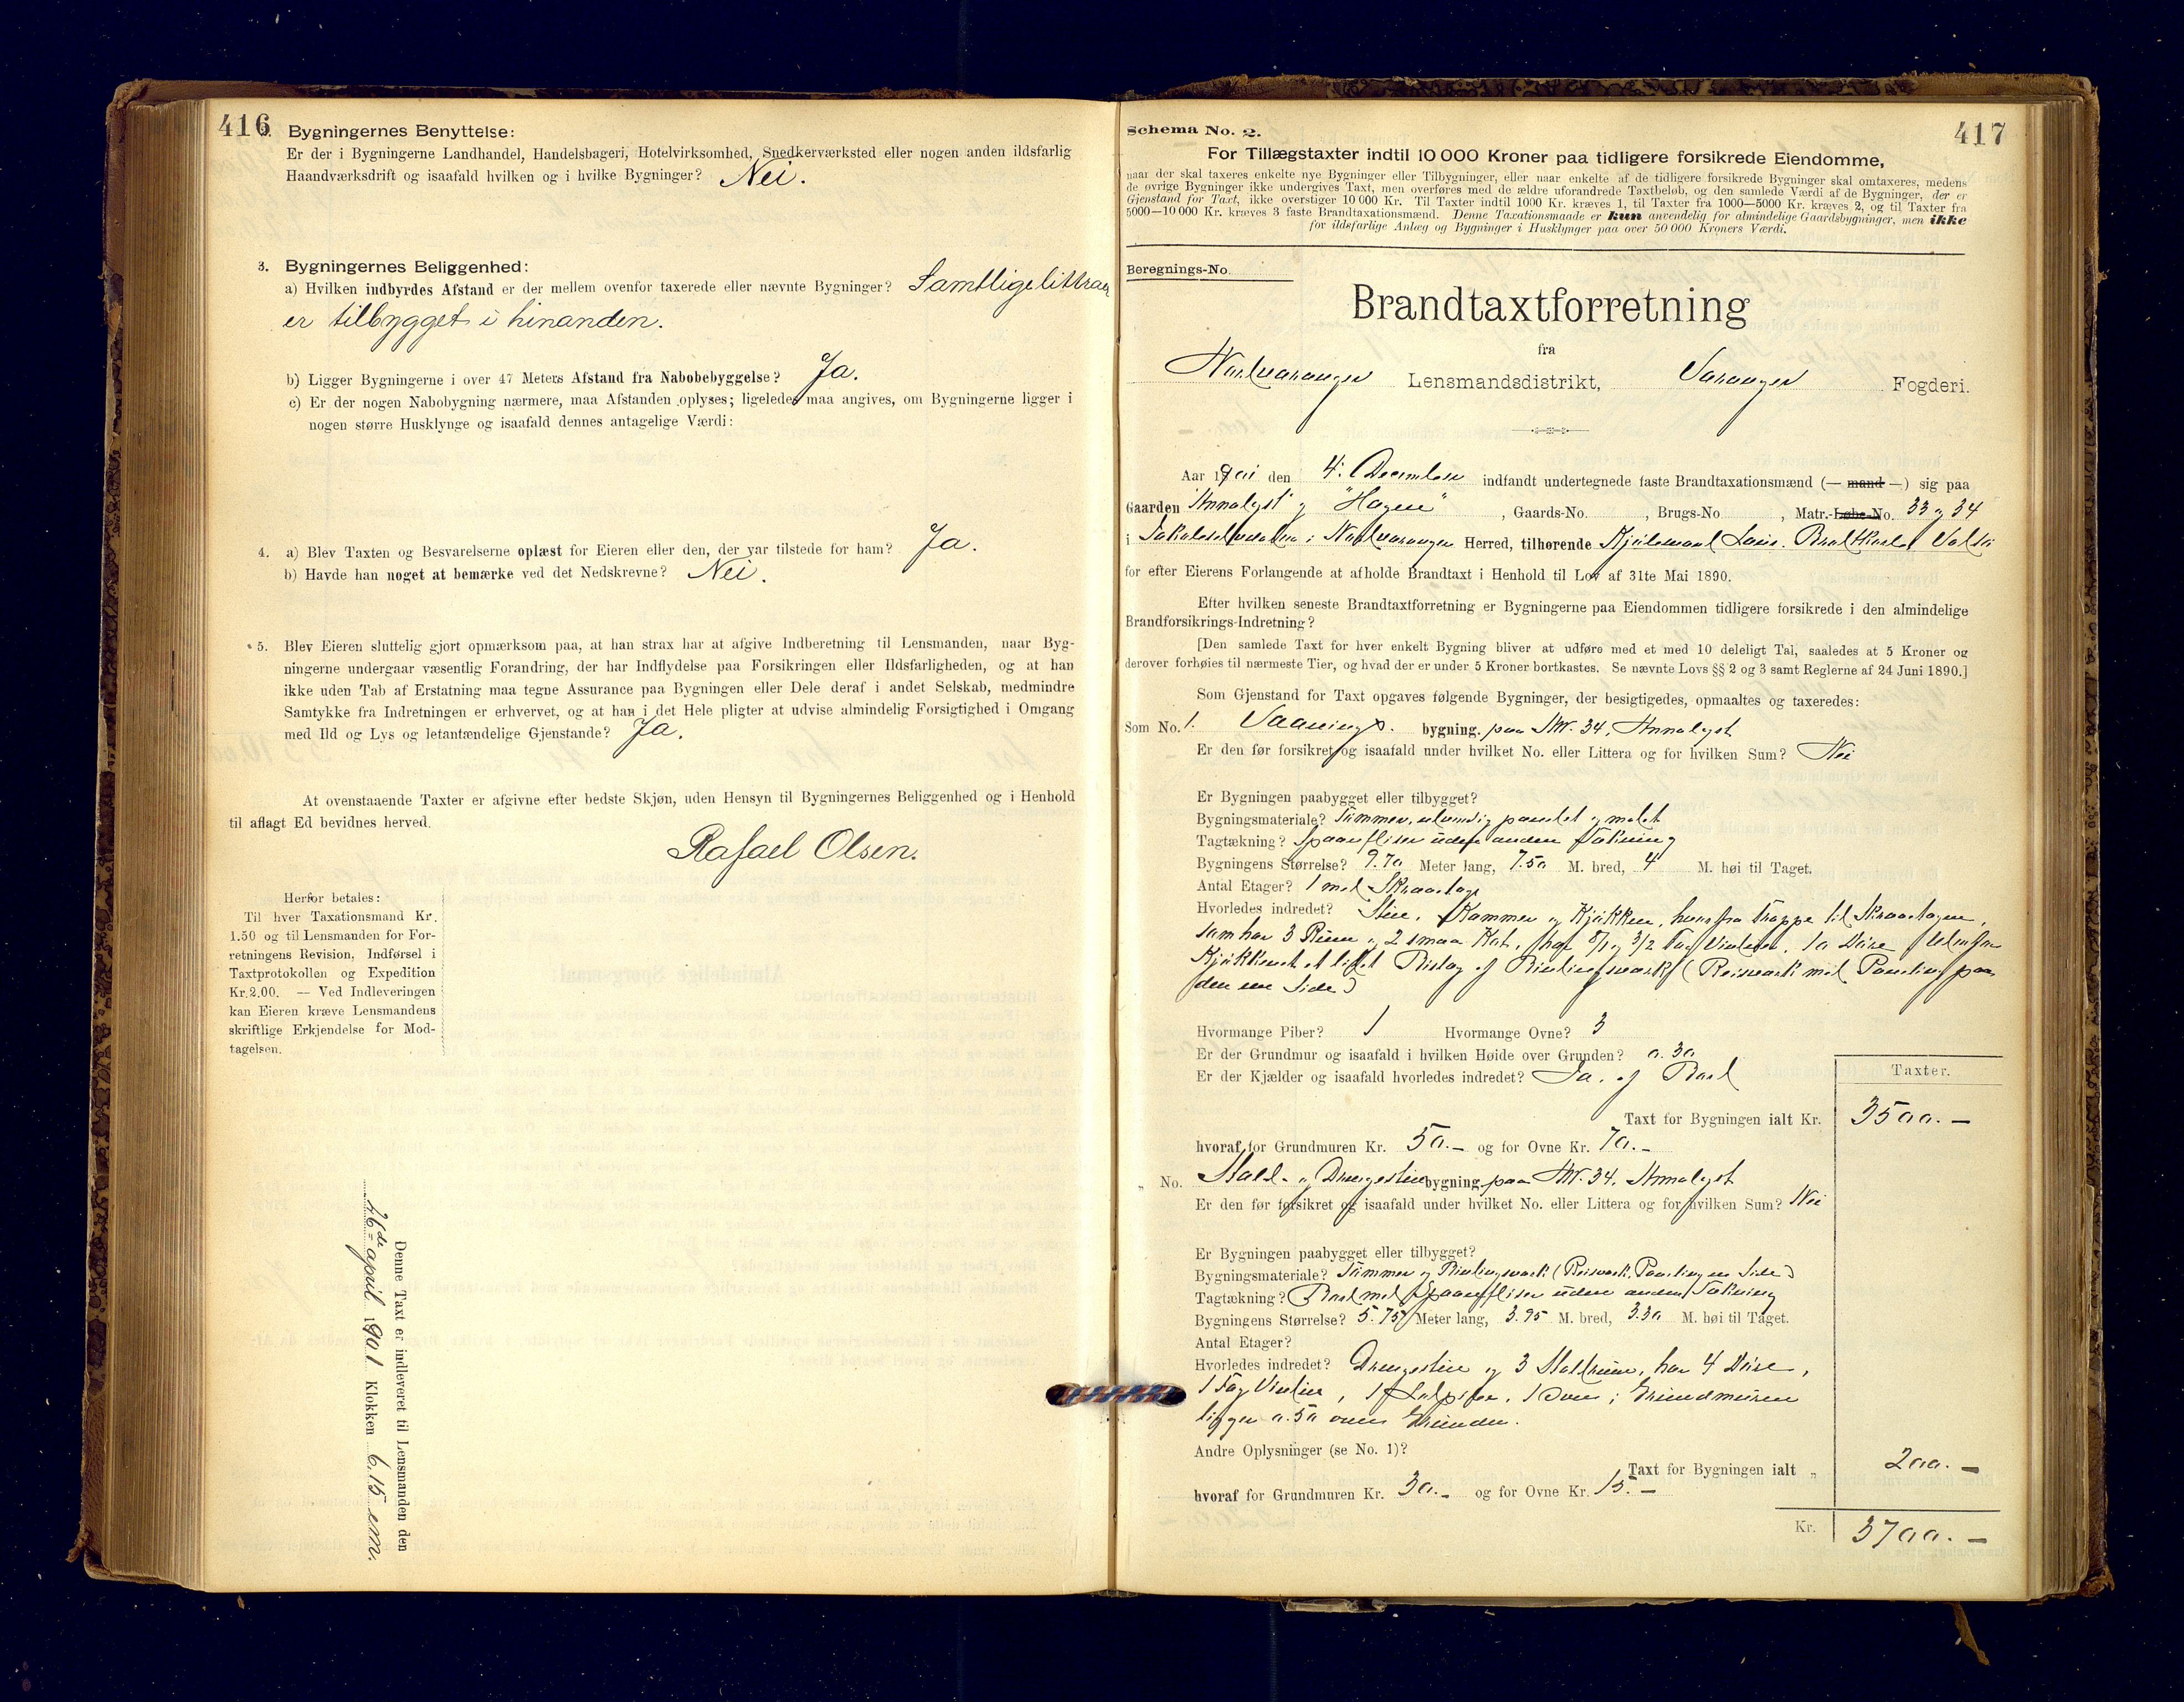 416
2. Bygningernes Benyttelse:
Er der i Bygningerne Landhandel, Handelsbageri, Hotelvirksomhed, Snedkerværksted eller nogen anden ildsfarlig
Haandværksdrift og isaafald hvilken og i hvilke Bygninger? Nei.
3. Bygningernes Beliggenhed:
a) Hvilken indbyrdes Afstand er der mellem ovenfor taxerede eller nævnte Bygninger? Samtlige littraer
er tilbygget i hinanden.
b) Ligger Bygningerne i over 47 Meters Afstand fra Nabobebyggelse? Ja.
c) Er der nogen Nabobygning nærmere, maa Afstanden oplyses; ligeledes maa angives, om Bygningerne ligger i
nogen større Husklynge og isaafald dennes antagelige Værdi:
4. a) Blev Taxten og Besvarelserne oplæst for Eieren eller den, der var tilstede for ham? Ja.
b) Havde han noget at bemærke ved det Nedskrevne? Nei.
5. Blev Eieren sluttelig gjort opmærksom paa, at han strax har at afgive Indberetning til Lensmanden, naar Byg-
ningerne undergaar væsentlig Forandring, der har Indflydelse paa Forsikringen eller Ildsfarligheden, og at han
ikke uden Tab af Erstatning maa tegne Assurance paa Bygningen eller Dele deraf i andet Selskab, medmindre
Samtykke fra Indretningen er erhvervet, og at han i det Hele pligter at udvise almindelig Forsigtighed i Omgang
med Ild og Lys og letantændelige Gjenstande? Ja.
At ovenstaaende Taxter er afgivne efter bedste Skjøn, uden Hensyn til Bygningernes Beliggenhed og i Henhold
til aflagt Ed bevidnes herved.
Rafael Olsen.
Herfor betales:
Til hver Taxationsmand Kr.
1.50 og til Lensmanden for For-
retningens Revision, Indførsel i
Taxtprotokollen og Expedition
Kr. 2.00. — Ved Indleveringen
kan Eieren kræve Lensmandens
skriftlige Erkjendelse for Mod-
tagelsen.
Denne Taxt er indleveret til Lensmanden den
26de april 1901 Klokken 6,15 em.
417
Schema No. 2.
For Tillægstaxter indtil 10 000 Kroner paa tidligere forsikrede Eiendomme,
naar der skal taxeres enkelte nye Bygninger eller Tilbygninger, eller naar enkelte af de tidligere forsikrede Bygninger skal omtaxeres, medens
de øvrige Bygninger ikke undergives Taxt, men overføres med de ældre uforandrede Taxtbeløb, og den samlede Værdi af de Bygninger, der er
Gjenstand for Taxt, ikke overstiger 10 000 Kr. Til Taxter indtil 1000 Kr. kræves 1, til Taxter fra 1000—5000 Kr. kræves 2, og til Taxter fra
5000—10 000 Kr. kræves 3 faste Brandtaxationsmænd. Denne Taxationsmaade er kun anvendelig for almindelige Gaardsbygninger, men ikke
for ildsfarlige Anlæg og Bygninger i Husklynger paa over 50 000 Kroners Værdi.
Beregnings-No.
Brandtaxtforretning
fra
Nordvaranger Lensmandsdistrikt, Varanger Fogderi.
Aar 1901 den 4. December indfandt undertegnede faste Brandtaxationsmænd (— mand —) sig paa
Gaarden "Annalyst" og "Hagen", Gaards-No. , Brugs-No , Matr.-Løbe-No. 33 og 34
i Jakobselvdalen i Nordvaranger Herred, tilhørende
for efter Eierens Forlangende at afholde Brandtaxt i Henhold til Lov af 31te Mai 1890.
Efter hvilken seneste Brandtaxtforretning er Bygningerne paa Eiendommen tidligere forsikrede i den almindelige
Brandforsikrings-Indretning?
[Den samlede Taxt for hver enkelt Bygning bliver at udføre med et med 10 deleligt Tal, saaledes at 5 Kroner og
derover forhøies til nærmeste Tier, og hvad der er under 5 Kroner bortkastes. Se nævnte Lovs §§ 2 og 3 samt Reglerne af 24 Juni 1890.]
Som Gjenstand for Taxt opgaves følgende Bygninger, der besigtigedes, opmaaltes og taxeredes:
Som No. 1. Vaanings. bygning. paa M.N. 34, Annalyst
Er den før forsikret og isaafald under hvilket No. eller Littera og for hvilken Sum? Nei
Er Bygningen paabygget eller tilbygget?
Bygningsmateriale? Tømmer, udvendig panelet og malet
Tagtækning? Spaanfliser uden anden Tækning
Bygningens Størrelse? 9.70 Meter lang, 7.50 M. bred, 4 M. høi til Taget.
Antal Etager? 1 med Skraatage
Hvorledes indredet? Stue, Kammer og Kjøkken, hvorfra Trappe til Skraatagen,
som har 3 Rum og 2 smaa Kot, har 8/1 og 3/2 Fag Vinduer, 10 Døre. Udenfor
Kjøkkenet et lidet Bislag af Bindingsværk (Reisværk med Paneling paa
den ene Side)
Hvormange Piber? 1 Hvormange Ovne? 3
Er der Grundmur og isaafald i hvilken Høide over Grunden? 0.30
Er der Kjælder og isaafald hvorledes indredet? Ja, af Bord
Taxter.
Taxt for Bygningen ialt Kr. 3500.—
hvoraf for Grundmuren Kr. 50.— og for Ovne Kr. 70.—
" No. Stald- og Drengestuebygning. paa M.N. 34, Annalyst
Er den før forsikret og isaafald under hvilket No. eller Littera og for hvilken Sum? Nei
Er Bygningen paabygget eller tilbygget?
Bygningsmateriale? Tømmer og Bindingsværk (Reisværk, Paneling en Side)
Tagtækning? Bord med Spaanfliser uden anden Tækning
Bygningens Størrelse? 5.75 Meter lang, 3.95 M. bred, 3.30 M. høi til Taget.
Antal Etager?
Hvorledes indredet? Drengestue og 3 Staldrum, har 4 Døre,
1 Fag Vindue, 1 , 1 Ovn; Grundmuren
ligger 0.50 over Grunden.
Andre Oplysninger (se No. 1)?
Taxt for Bygningen ialt " 200.—
hvoraf for Grundmuren Kr. 30.— og for Ovne Kr. 15.—
Kr. 3700.—